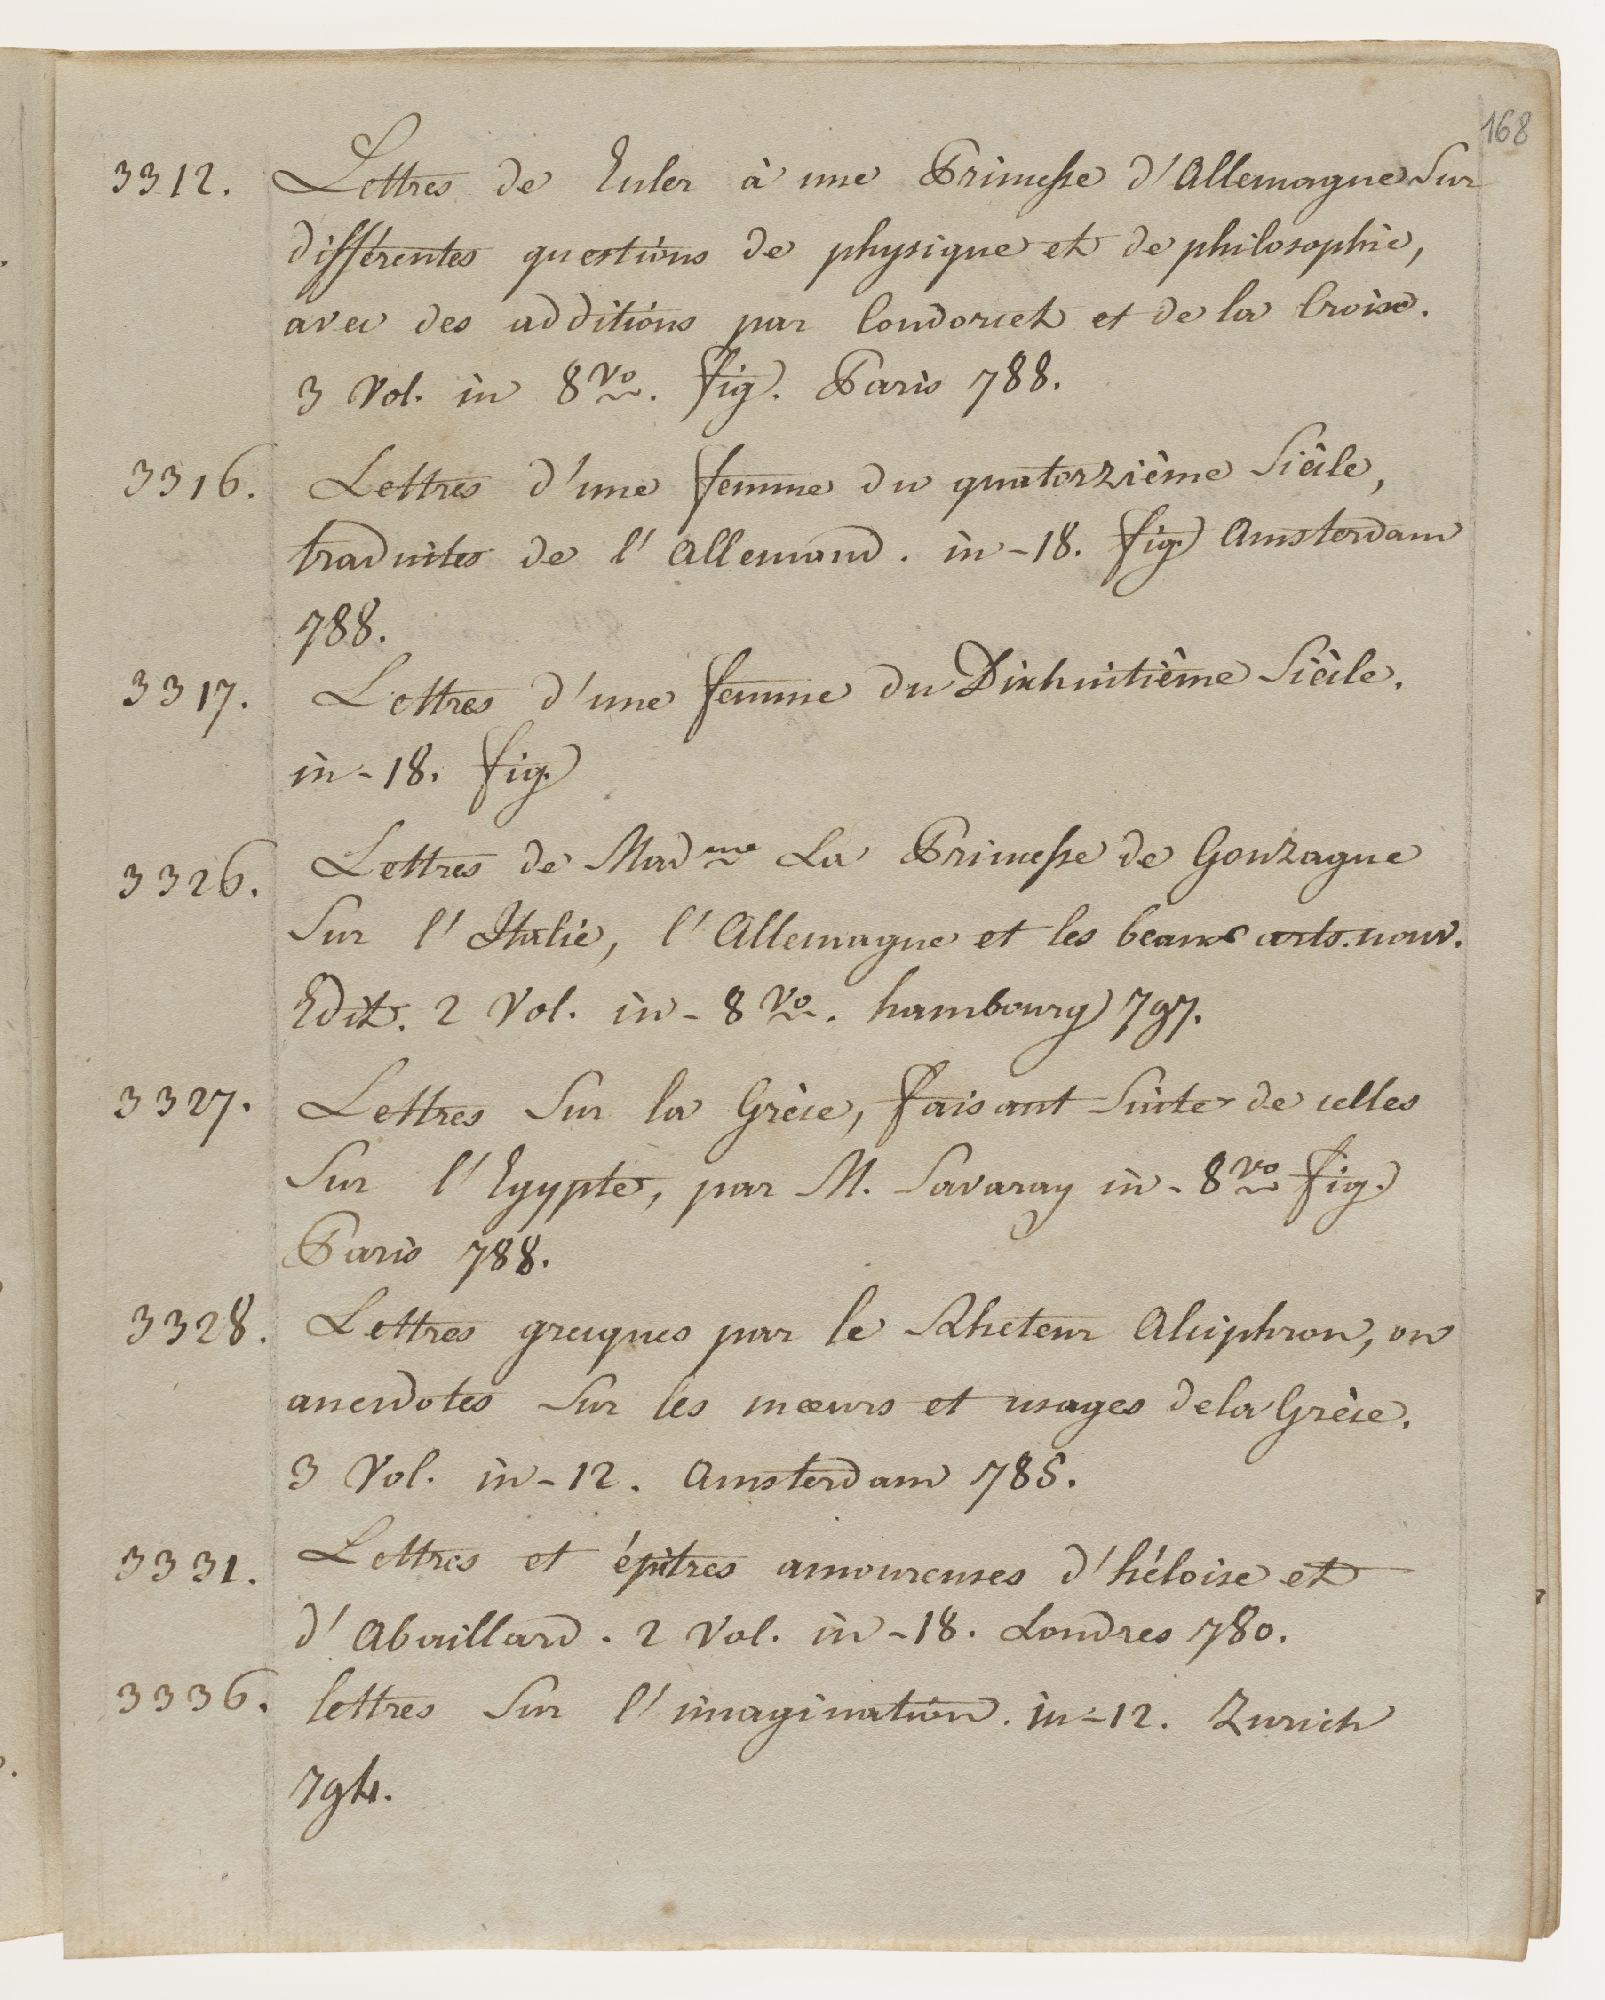 168
3312. Lettres de Euler à une Princesse d'Allemagne Sur
différentes questions de physique et de philosophie,
avec des additions par Condorcet et de la Croise.
3 Vol. in 8vo. fig. Paris 788.
3316. Lettres d'une femme du quatorzième Siècle,
traduites de l'Allemand. in-18. fig. Amsterdam
788.
3317. Lettres d'une femme du Dixhuitième Siècle.
in-18. fig.
3326. Lettres de Madme La Princesse de Gonzague
Sur l'Italie, l'Allemagne et les beaux arts. nouv.
Edit. 2 Vol. in-8vo. hambourg 797.
3327. Lettres Sur la Grèce, faisant Suite de celles
Sur l'Egypte, par M. Savaray in-8vo fig.
Paris 788.
3328. Lettres grecques par le Rheteur Alciphron, ou
anecdotes Sur les mœurs et usages de la Grèce.
3 Vol. in-12. Amsterdam 785.
3331. Lettres et épitres amoureuses d'héloise et
d'Abaillard. 2 Vol. in-18. Londres 780.
3336. lettres Sur l'imagination. in-12. Zurich
794.